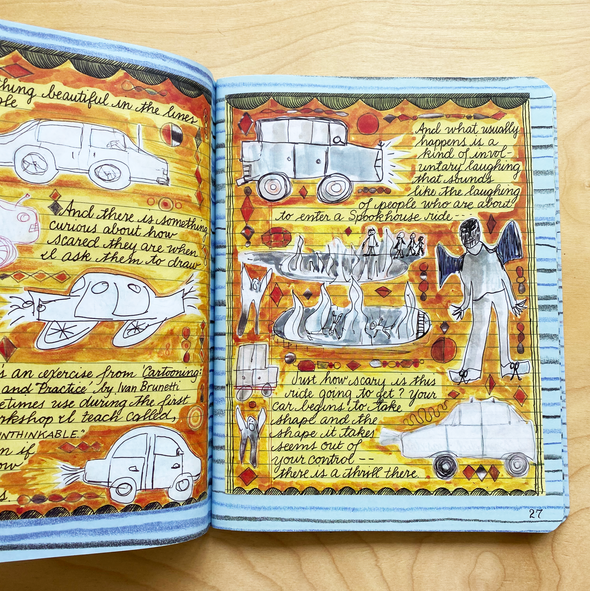 thing beautiful in the lines
And there is something
curious about how
scared they are when
I ask them to draw
's an exercise from 'Cartooning:
and Practice', by Ivan Brunetti
times use during the first
kshop I teach called,
"
s.
And what usually
happens is a
kind of invol-
untary laughing
that sounds
like the laughing
of people who are about
to enter a Spookhouse ride---
Just how scary is this
ride going to get? Your
car begins to take
shape and the
shape it takes
seems out of
your control --
there is a thrill there.
27